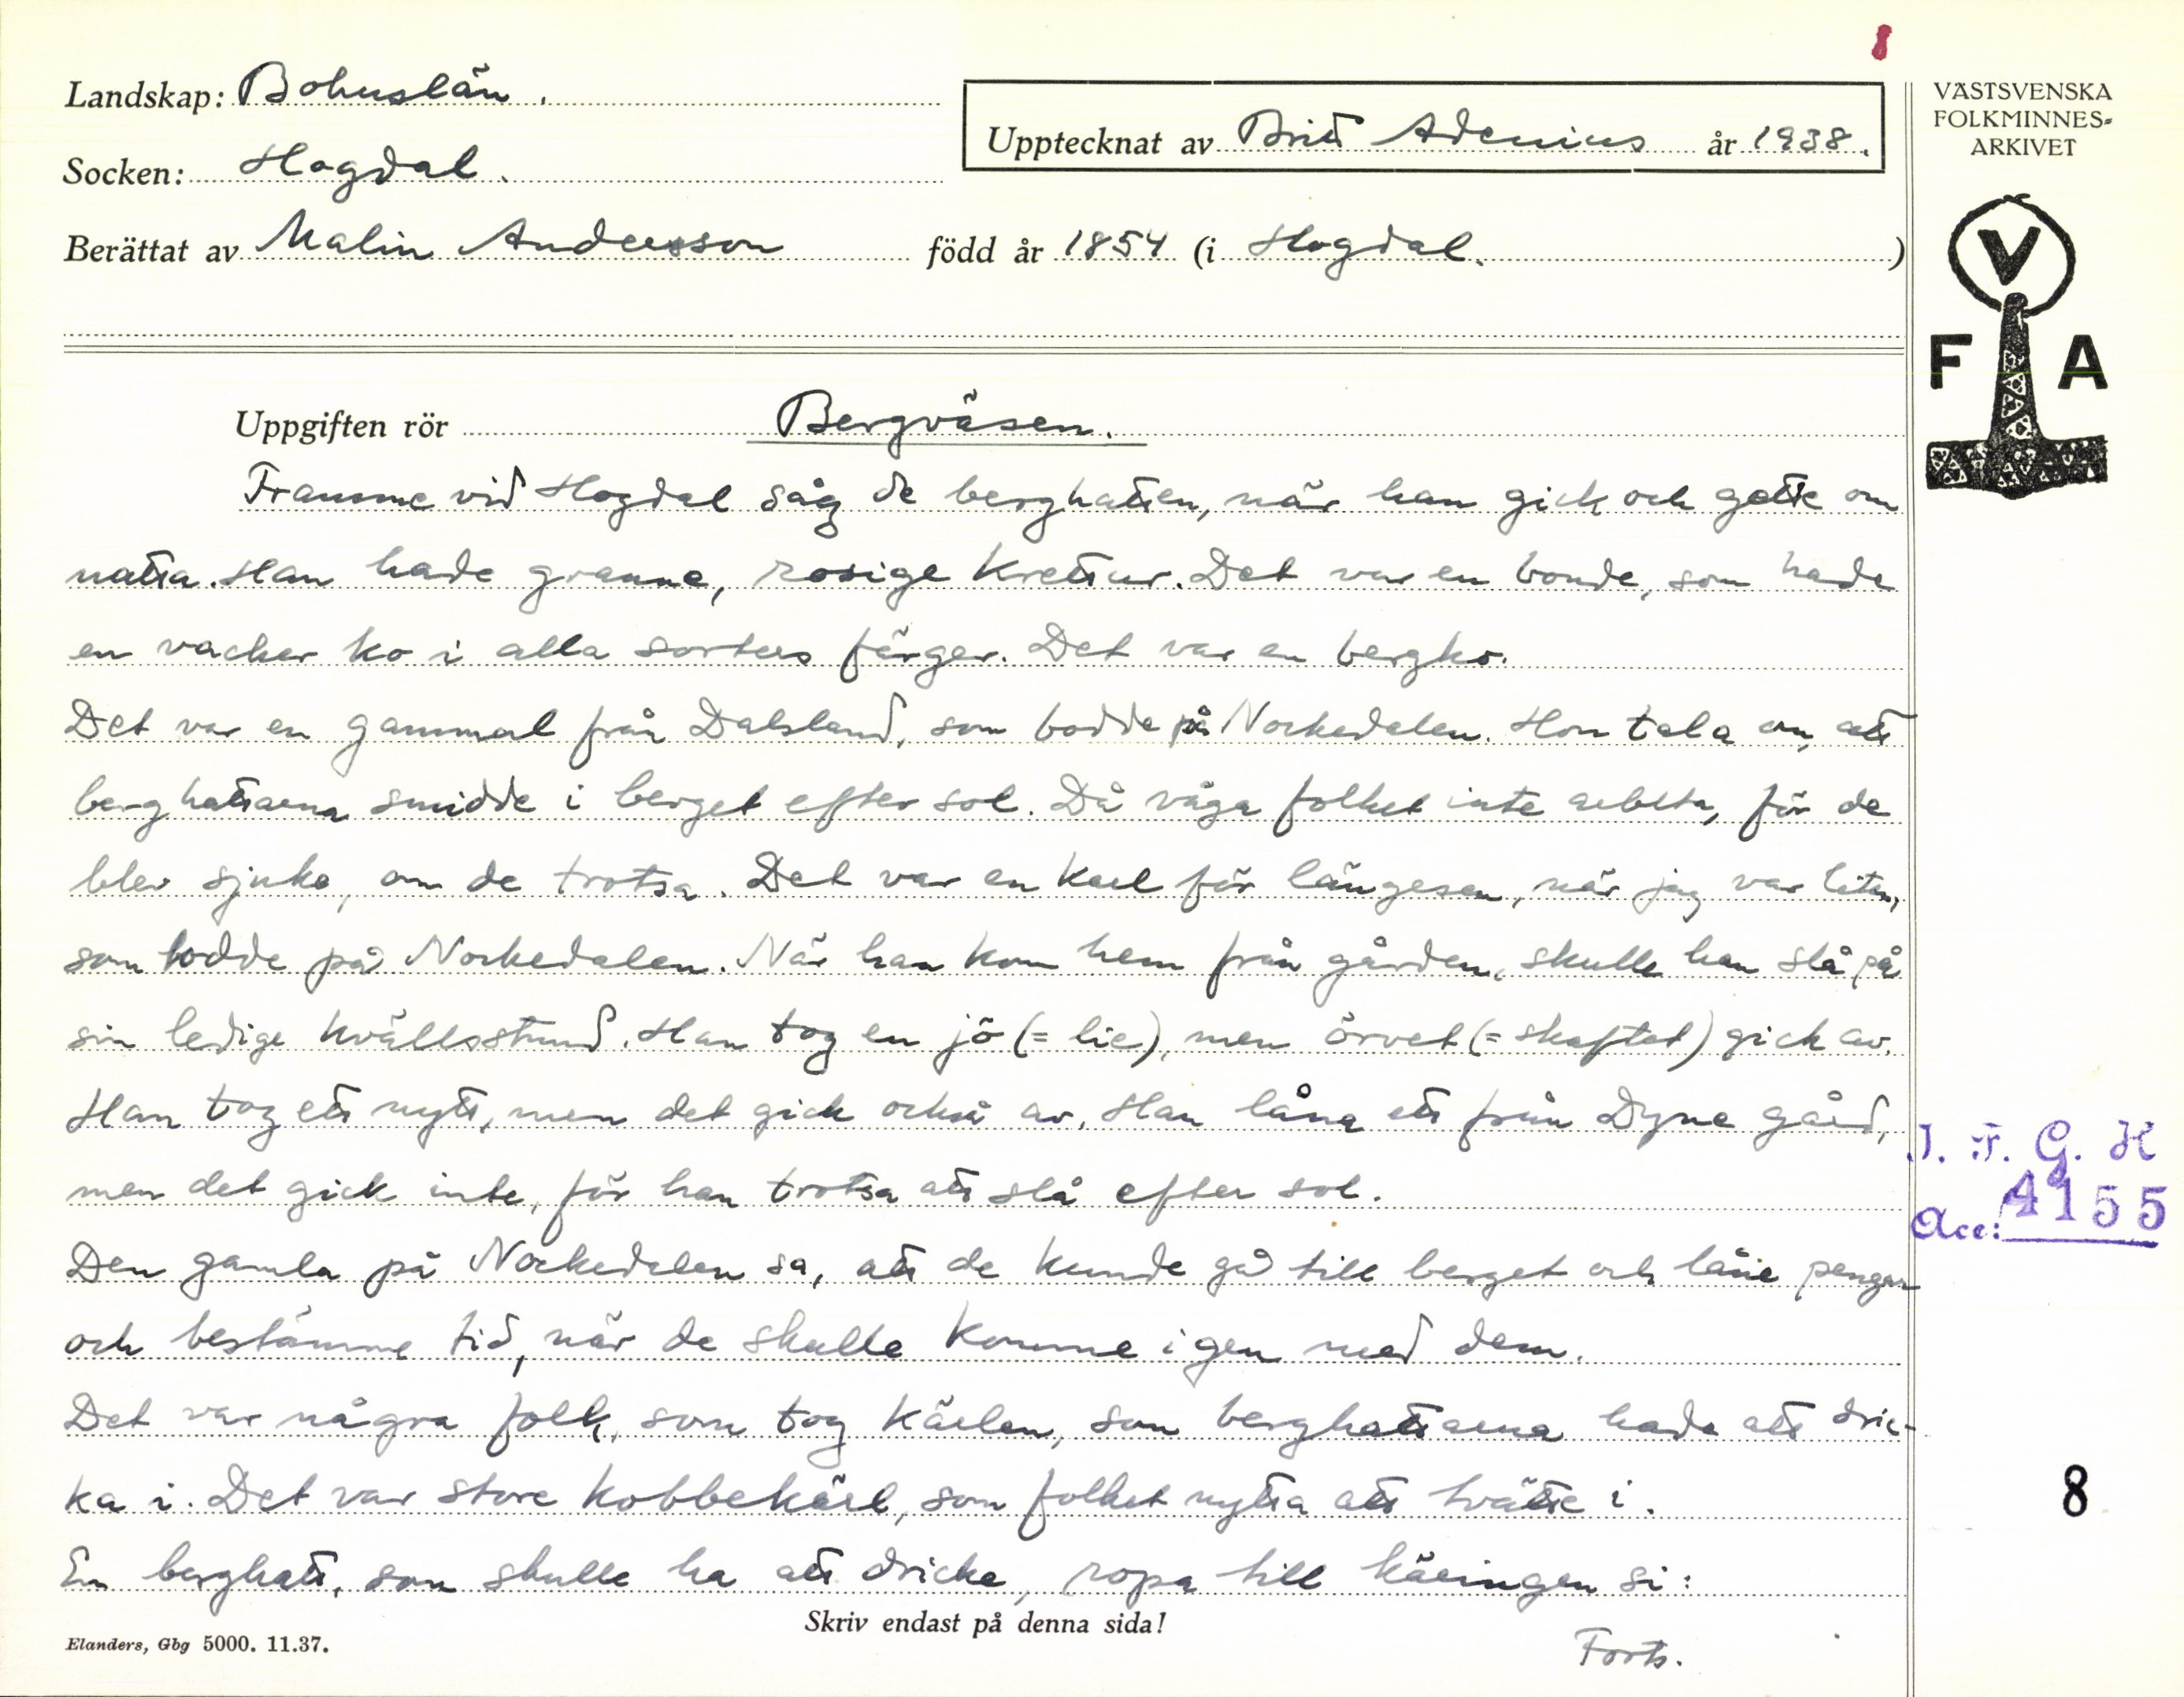 8
Landskap: Bohuslän.
Upptecknat av Britt Adenius år 1938.
VÄSTSVENSKA
FOLKMINNES-
ARKIVET
Socken: Hogdal.
Berättat av Malin Andersson född år 1854 (i Hogdal.)
V
F A
Uppgiften rör Bergväsen.
Framme vid Hogdal såg de berghatten, när han gick och gette om
natta. Han hade granne, rosige krettur. Det var en bonde, som hade
en vacker ko i alla sorters färger. Det var en bergko.
Det var en gammal från Dalsland, som bodde på Norkedalen. Hon tala om, att
berghattarna smidde i berget efter sol. Då våga folket inte arbeta, för de
blev sjuka, om de trotsa. Det var en karl för längesen, när jag var liten,
som bodde på Norkedalen. När han kom hem från gården, skulle han slå på
sin ledige kvällsstund. Han tog en jö (= lie), men örvet (= skaftet) gick av.
Han tog ett nytt, men det gick också av. Han låna ett från Dyne gård,
men det gick inte, för han trotsa att slå efter sol.
Den gamla på Norkedalen sa, att de kunde gå till berget och låne pengar
och bestämme tid, när de skulle komme igen med dem.
Det var några folk, som tog kärlen, som berghattarna hade att dric-
ka i. Det var store kobbekärl, som folket nytta att tvätte i.
En berghatt, som skulle ha att dricke, ropa till käringen si:
Skriv endast på denna sida!
Forts.
Elanders, Gbg 5000. 11.37.
I. F. G. H
Acc: 4155
8